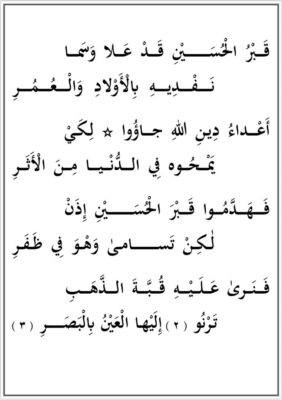 قَبْرُ الْحُسَـــيْنِ قَدْ عَلا وَسَمـا
نَــفْـدِيـهِ بِالْأَوْلادِ وَالْـعُـمُـرِ
أَعْداءُ دِينِ اللهِ جـاؤُوا ☆ لِكَيْ
يَمْـحُوه فِي الدُّنْيـا مِنَ الْأَثَرِ
فَـهَدَّمُـوا قَبْرَ الْحُسَــيْنِ إِذَنْ
لٰكِنْ تَسـامىٰ وَهْوَ فِي ظَفَرِ
فَـنَرىٰ عَـلَـيْـهِ قُـبَّـةَ الـذَّهَبِ
تَرْنُو (٢) إِلَيْها الْعَيْنُ بِالْبَصَـرِ (٣)